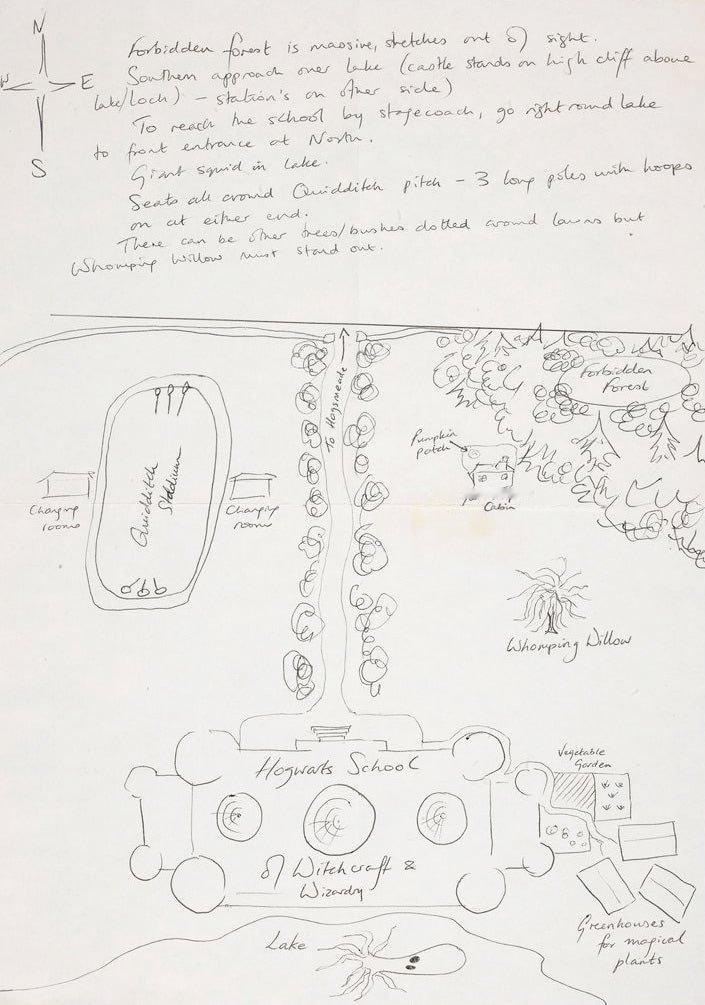 N
W E
S
Forbidden forest is massive, stretches out of sight.
Southern approach over lake (castle stands on high cliff above
lake/loch) – station's on other side)
To reach the school by stagecoach, go right round lake
to front entrance at North.
Giant squid in lake.
Seats all around Quidditch pitch – 3 long poles with hoops
on at either end.
There can be other trees/bushes dotted around lawns but
Whomping Willow must stand out.
To Hogsmeade
Forbidden
Forest
Pumpkin
patch
Cabin
Quidditch
Stadium
Changing
rooms
Changing
rooms
Whomping Willow
Hogwarts School
of Witchcraft &
Wizardry
Vegetable
Garden
Greenhouses
for magical
plants
Lake